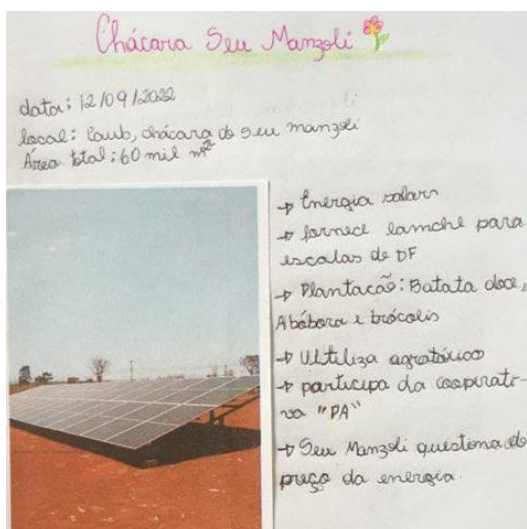 Chácara Seu Manzoli
data: 12/09/2022
local: Caub, chácara do seu manzoli
Área total: 60 mil m²
→ Energia solar
→ fornece lamche para
escolas de DF
→ Plantação: Batata doce,
Abóbora e brócolis
→ Ultiliza agrotóxico
→ participa da cooperati-
va "PA"
→ Seu Manzoli questiona do
preço da energia.